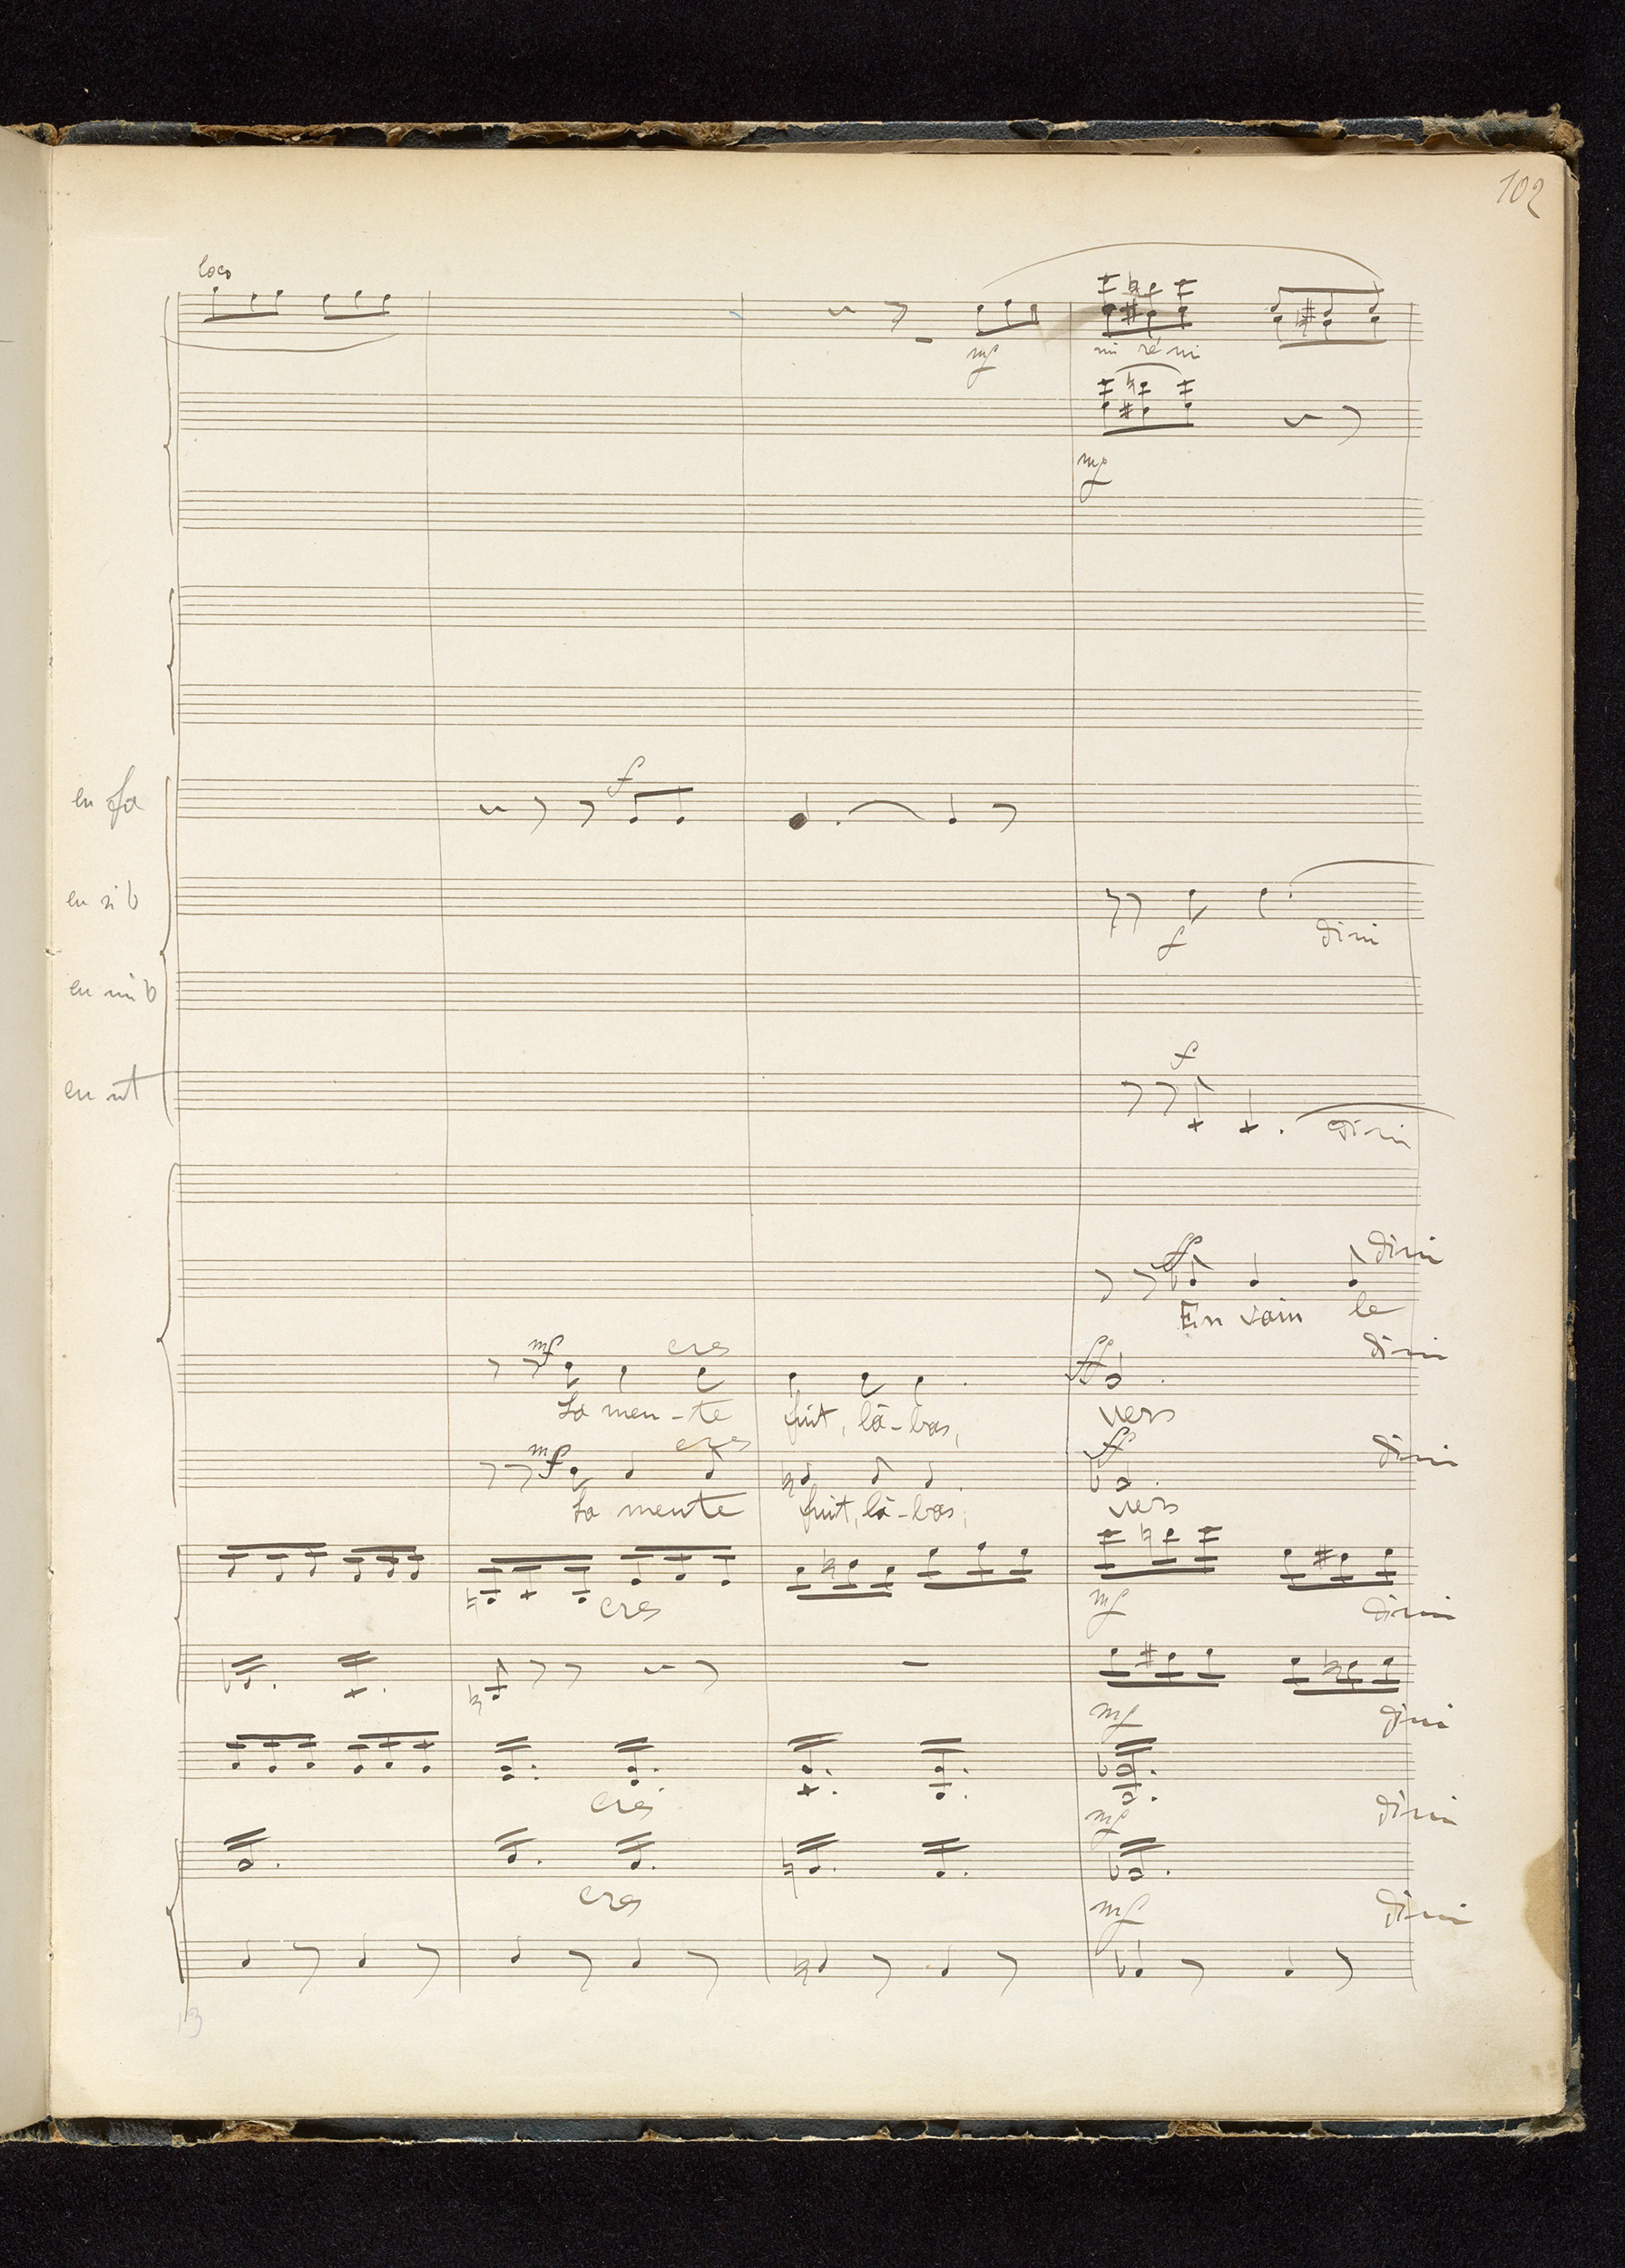 102
loco
mf
mi ré mi
mf
en fa
f
en si b
f
dim
en mi b
en ut
f
dim
ff
dim
En vain le
mf
cres
ff
dim
La meu-te fuit, là-bas, vers
mf
cres
ff
dim
La meute fuit, là-bas, vers
cres
mf
dim
mf
dim
cres
mf
dim
cres
mf
dim
13